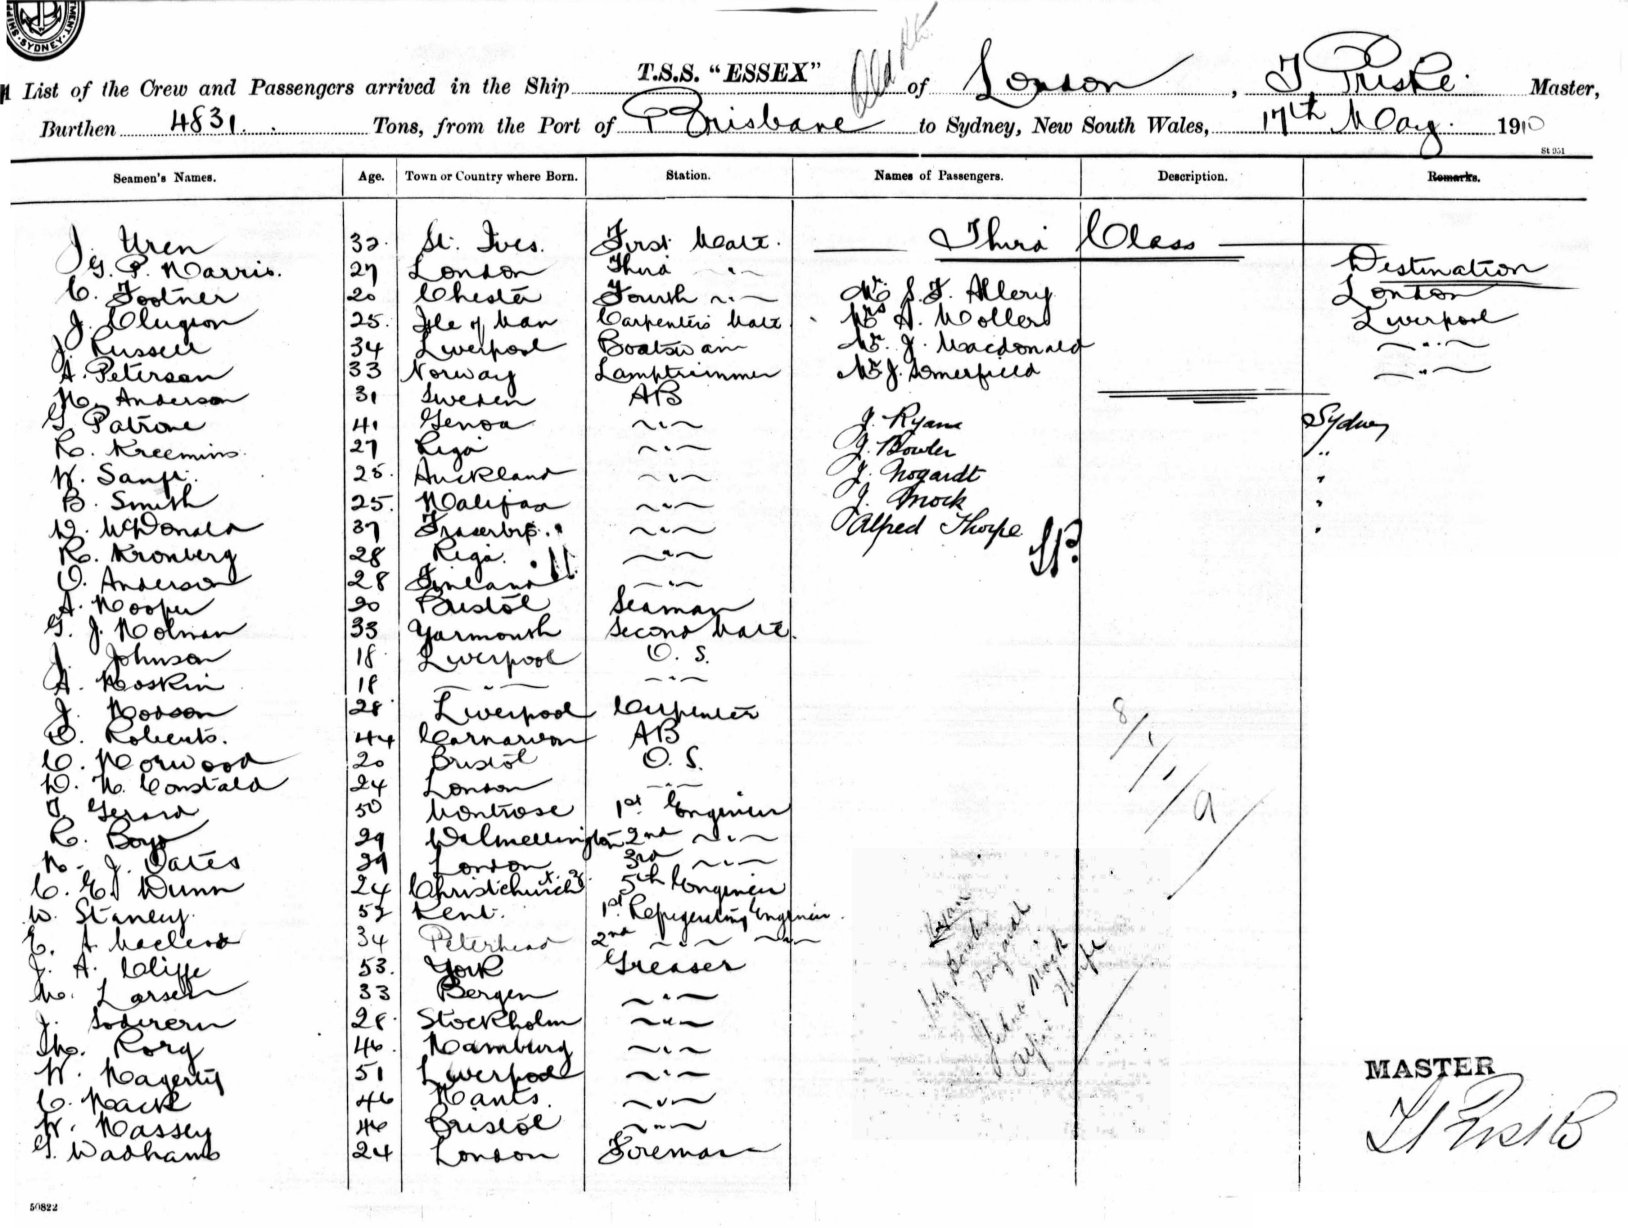 SYDNEY
List of the Crew and Passengers arrived in the Ship T.S.S. "ESSEX" of London, T Priske. Master,
Burthen 4831. Tons, from the Port of Brisbane to Sydney, New South Wales, 17th May. 1910
St 951
Seamen's Names. Age. Town or Country where Born. Station. Names of Passengers. Description. Remarks.
J. Uren 32. St. Ives. First Mate. Third Class
G. P. Harris. 27 London Third " Destination
C. Footner 20 Chester Fourth " Mr S. F. Allery London
J. Clugson 25. Isle of Man Carpenter's Mate. Mrs A. Mollers Liverpool
J. Russell 34 Liverpool Boatswain Mr. J. Macdonald "
A. Peterson 33 Norway Lamptrimmer Mr J. Somerfield "
N. Anderson 31 Sweden AB
G. Patrone 41 Genoa " J. Ryan Sydney
R. Kreemins. 27 Riga " J. Bowler "
W. Sanft. 25. Auckland " J. Nogardt "
B. Smith 25. Halifax " J. Mock "
D. McDonald 37 Fraserbg. " Alfred Thorpe "
R. Kronberg 28 Riga. "
O. Anderson 28 Finland "
A. Hooper 20 Bristol Seaman
G. J. Holman 33 Yarmouth Second Mate.
J. Johnson 18 Liverpool O. S.
A. Hoskin 18 " "
J. Hodson 28 Liverpool Carpenter
O. Roberts. 44 Carnarvon AB
C. Norwood 20 Bristol O. S.
D. H. Constald 24 London "
T. Gerard 50 Montrose 1st Engineer
R. Boyd 29 Dalmellington 2nd "
H. J. Oates 29 London 3rd "
C. E. Dunn 24 Christchurch 5th Engineer
W. Stanery. 52 Kent. 1st Refrigerating Engineer.
E. A Macleod 34 Peterhead 2nd " "
J. A. Cliffe 53. York Greaser
N. Larsen 33 Bergen "
J. Soderern 28. Stockholm "
M. Rorg 46. Hamburg "
W. Hagerty 51 Liverpool "
C. Hack 46 Hants. "
W. Hassey 46 Bristol "
G. Wadhams 24 London Foreman
8/1/1/9/
Ryan
John Bowler
J Nogardt
Mock
Thorpe
MASTER
T Priske
50822